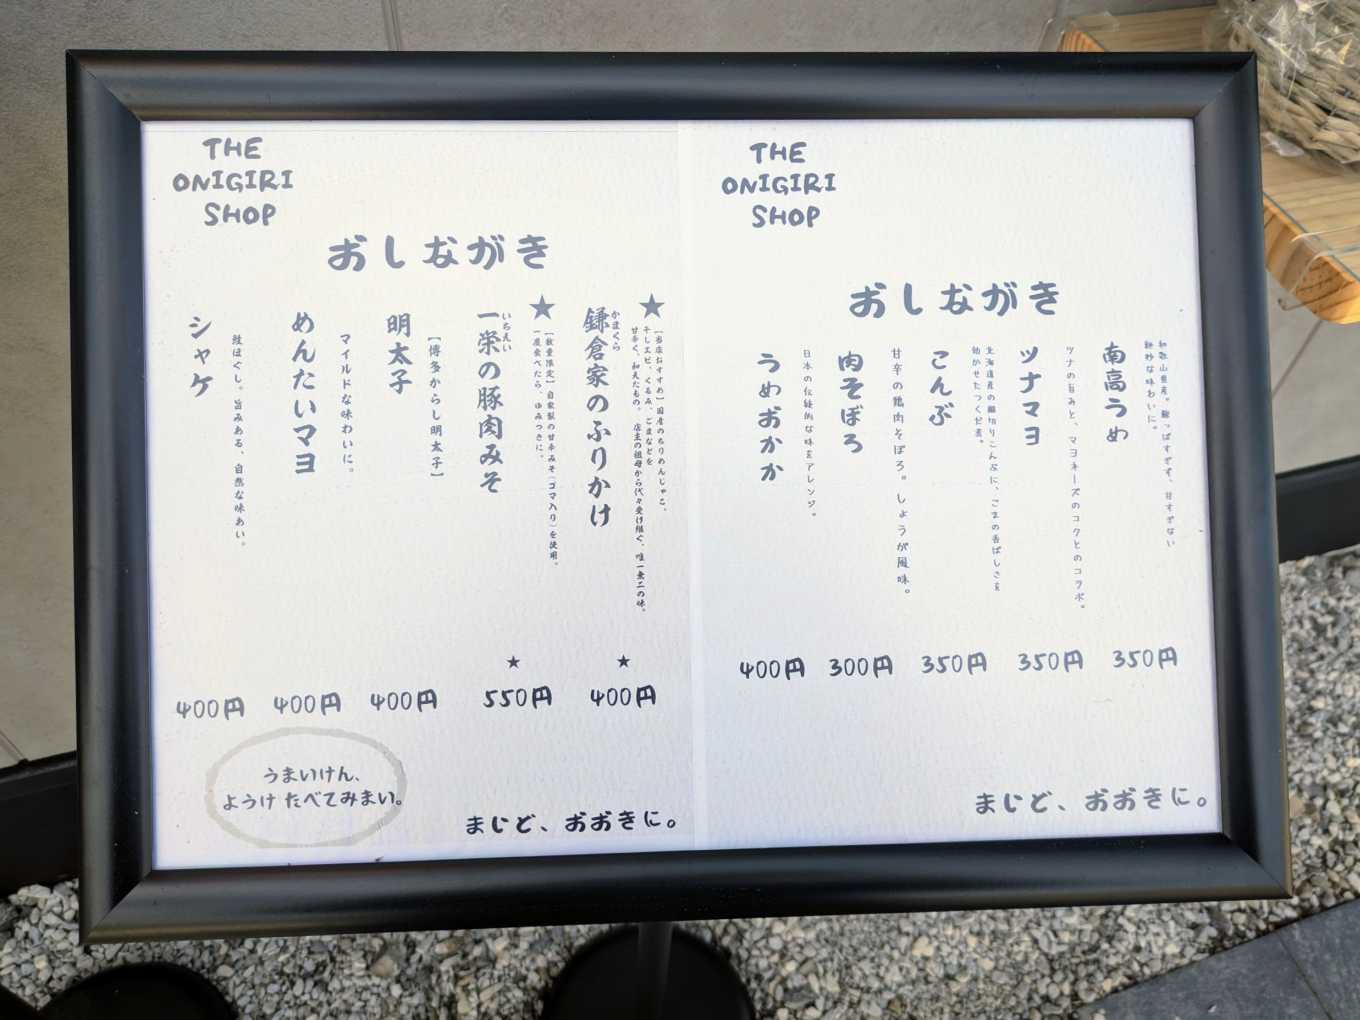 THE
ONIGIRI
SHOP
おしながき
★
鎌倉家のふりかけ
かまくら
【当店おすすめ】国産のちりめんじゃこ、
干しエビ、くるみ、ごまなどを
甘辛く、和えたもの。店主の祖母から代々受け継ぐ、唯一無二の味。
★
400円
★
一栄の豚肉みそ
いちえい
【数量限定】自家製の甘辛みそ(ゴマ入り)を使用。
一度食べたら、やみつきに。
★
550円
明太子
【博多からし明太子】
400円
めんたいマヨ
マイルドな味わいに。
400円
シャケ
鮭ほぐし。旨みある、自然な味あい。
400円
うまいけん、
ようけ たべてみまい。
まじど、おおきに。
THE
ONIGIRI
SHOP
おしながき
南高うめ
和歌山県産。酸っぱすぎず、甘すぎない
絶妙な味わいに。
350円
ツナマヨ
ツナの旨みと、マヨネーズのコクとのコラボ。
350円
こんぶ
北海道産の細切りこんぶに、ごまの香ばしさを
効かせたつくだ煮。
350円
肉そぼろ
甘辛の鶏肉そぼろ。しょうが風味。
300円
うめおかか
日本の伝統的な味をアレンジ。
400円
まじど、おおきに。